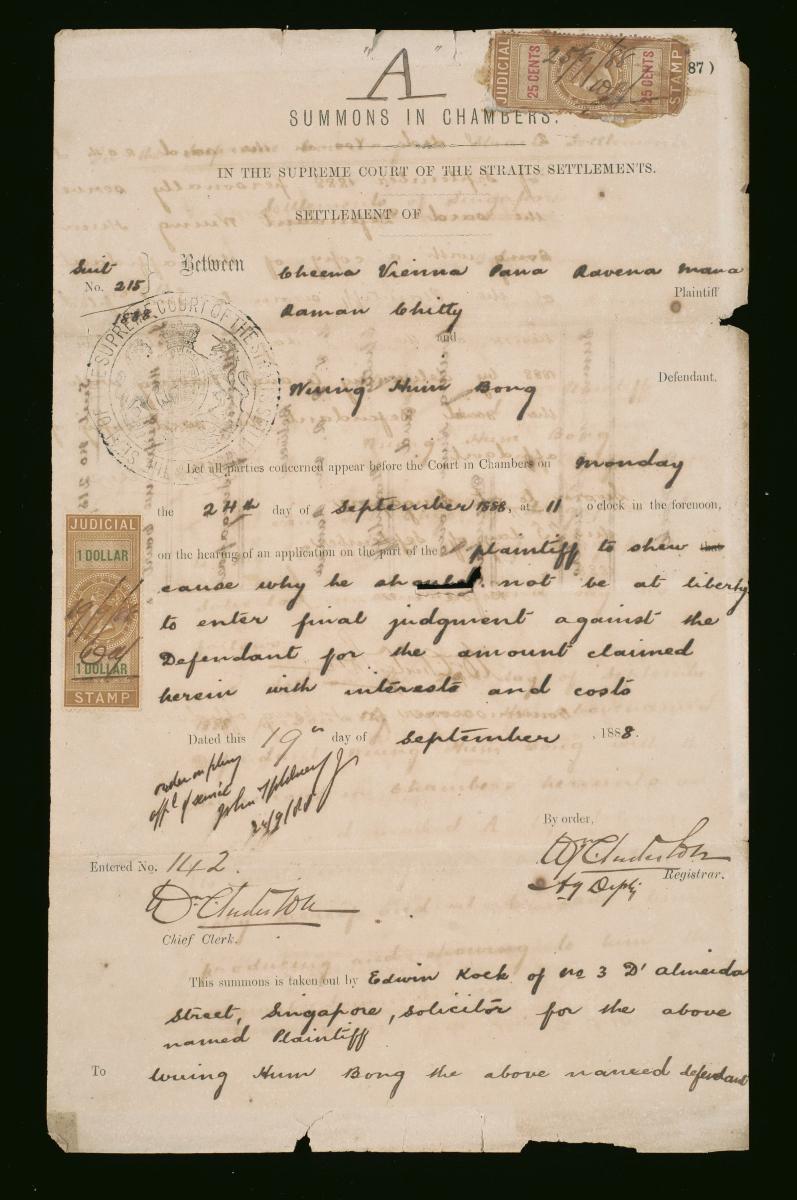 "A"
JUDICIAL 25 CENTS 25 CENTS STAMP
25/9/88
87 )
SUMMONS IN CHAMBERS.
IN THE SUPREME COURT OF THE STRAITS SETTLEMENTS.
SETTLEMENT OF
Suit
No. 215
1888
Between Cheena Vienna Pana Ravena Mana
Plaintiff
Raman Chitty
and
Wuing Hum Bong Defendant.
SUPREME COURT OF THE
Let all parties concerned appear before the Court in Chambers on Monday
the 24th day of September 1888, at 11 o'clock in the forenoon,
on the hearing of an application on the part of the plaintiff to shew
cause why he should not be at liberty
to enter final judgment against the
Defendant for the amount claimed
herein with interests and costs
JUDICIAL
1 DOLLAR
19/9/88
1 DOLLAR
STAMP
Dated this 19th day of September, 1888.
24/9/88
By order,
Wm Anderson
Ag Depy Registrar.
Entered No. 142.
Wm Anderson
Chief Clerk.
This summons is taken out by Edwin Koek of No 3 D'Almeida
Street, Singapore, solicitor for the above
named Plaintiff
To Wuing Hum Bong the above named defendant